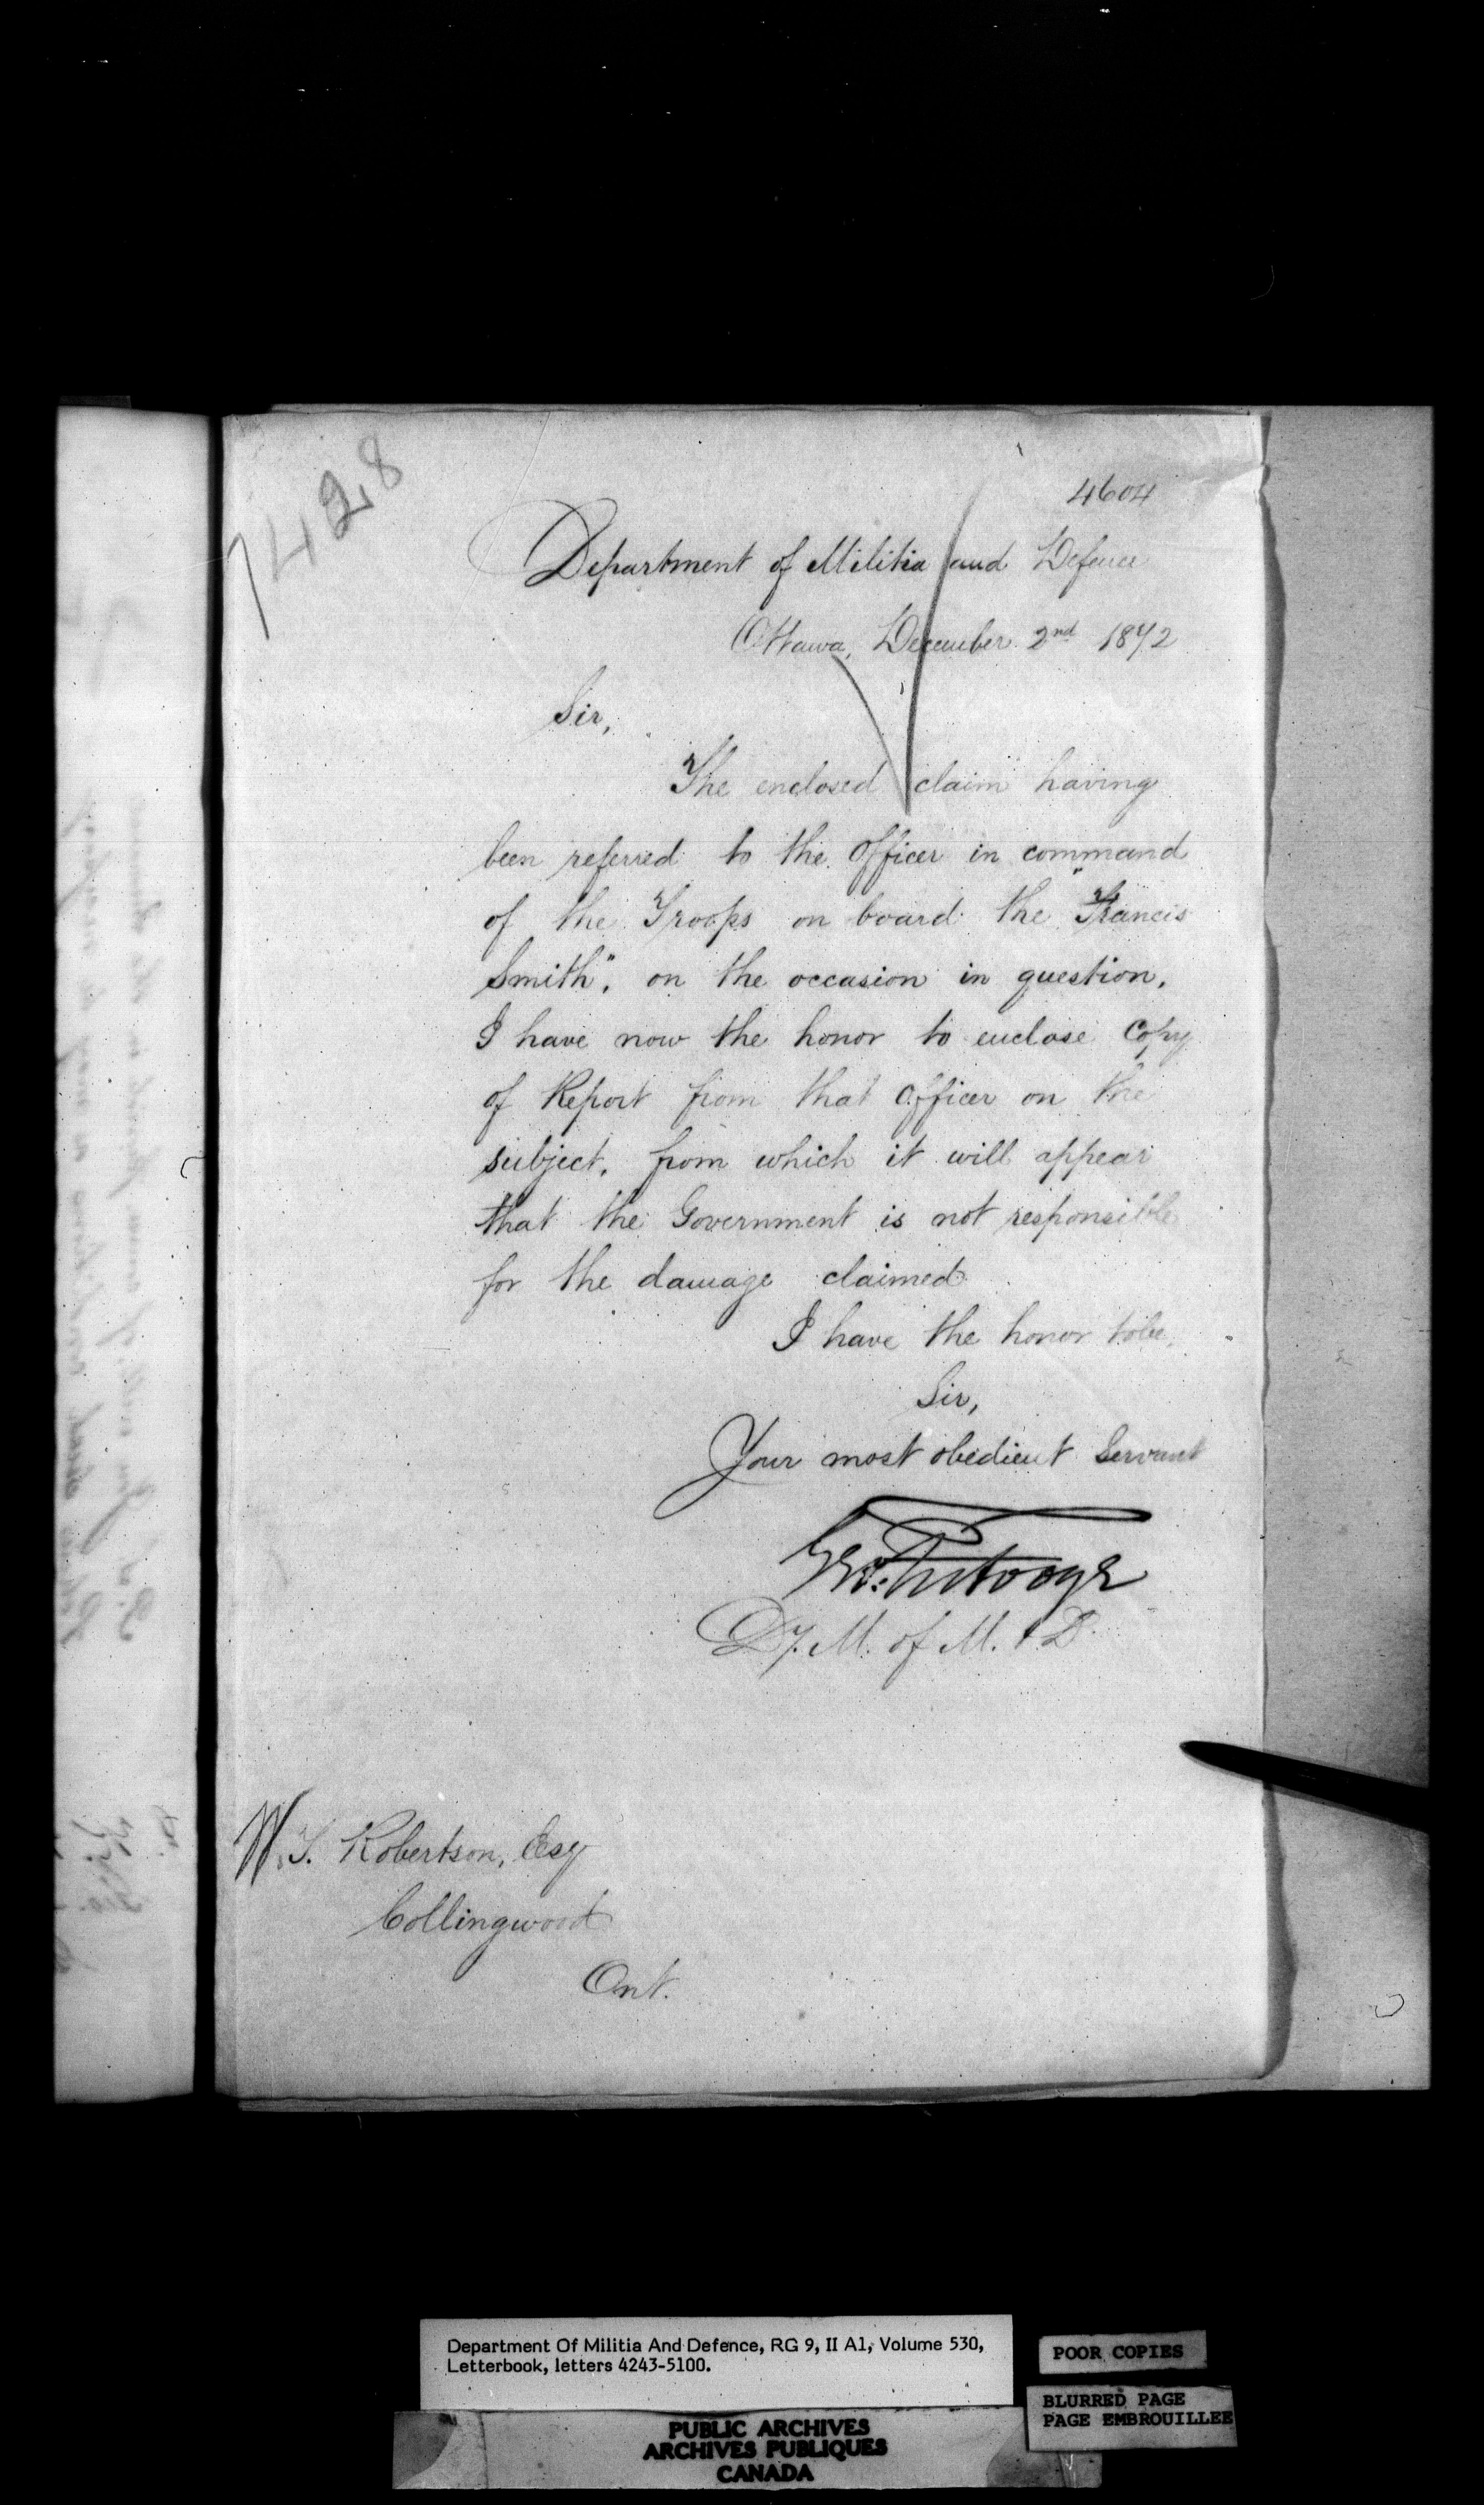 7428
4604
Department of Militia and Defence
Ottawa, December 2nd 1872
Sir,
The enclosed claim having
been referred to the Officer in command
of the Troops on board the "Francis
Smith", on the occasion in question,
I have now the honor to enclose Copy
of Report from that Officer on the
subject, from which it will appear
that the Government is not responsible
for the damage claimed
I have the honor to be,
Sir,
Your most obedient Servant
Geo: Futvoye
Dy. M. of M. & D.
W. T. Robertson, Esq
Collingwood
Ont.
Department Of Militia And Defence, RG 9, II A1, Volume 530,
Letterbook, letters 4243-5100.
POOR COPIES
BLURRED PAGE
PAGE EMBROUILLEE
PUBLIC ARCHIVES
ARCHIVES PUBLIQUES
CANADA